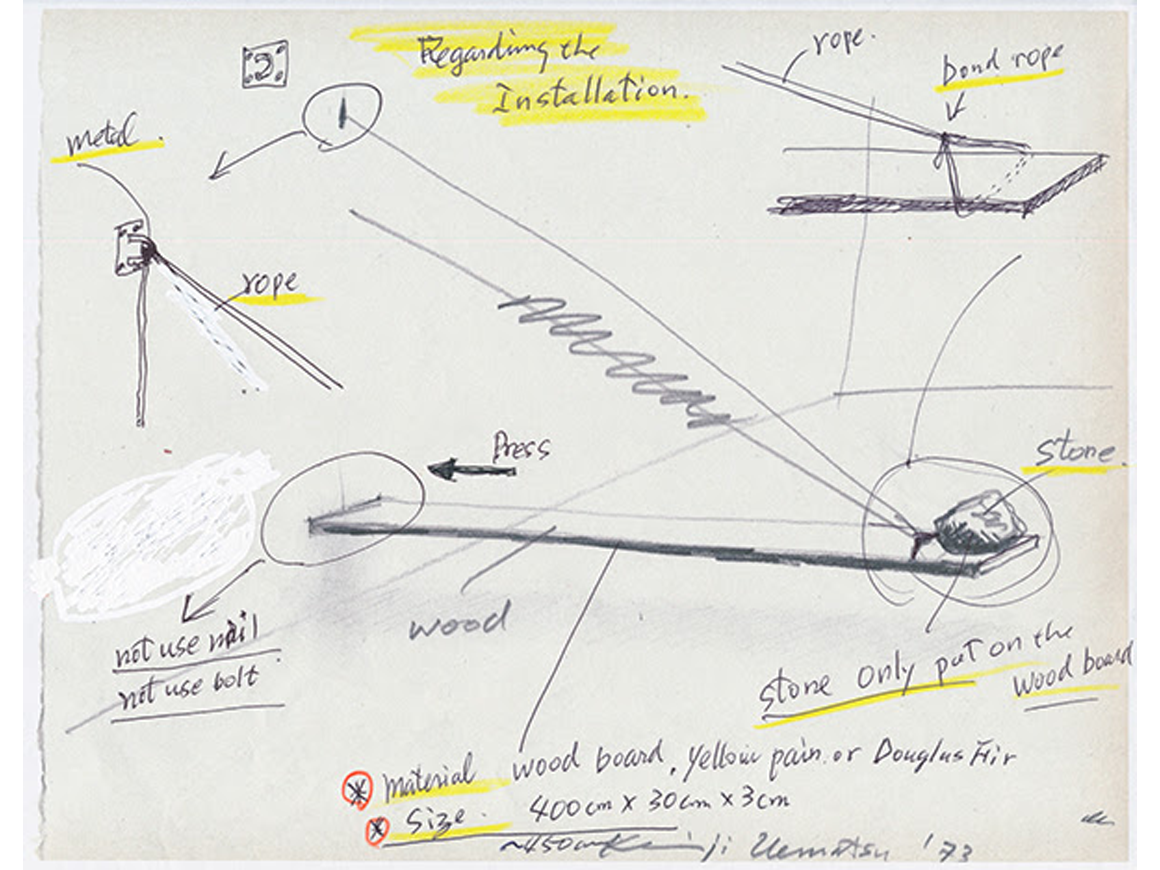 Regarding the
Installation.
rope.
bond rope
metal.
rope
Press
stone.
wood
not use nail
not use bolt
stone only put on the
wood board
* Material wood board, yellow pain. or Douglus Fir
* Size. 400cm X 30cm X 3cm
~450cm Kenji Uematsu '73